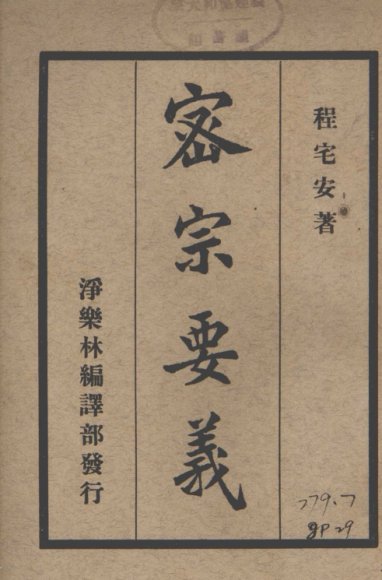 程宅安著
密宗要義
淨樂林編譯部發行
279.7